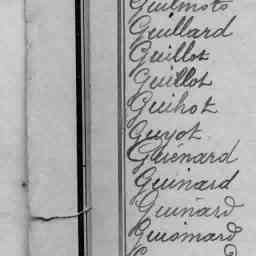 Guilmots
Guillard
Guillot
Guillot
Guihot
Guyot
Guénard
Guinard
Guinard
Guiomard